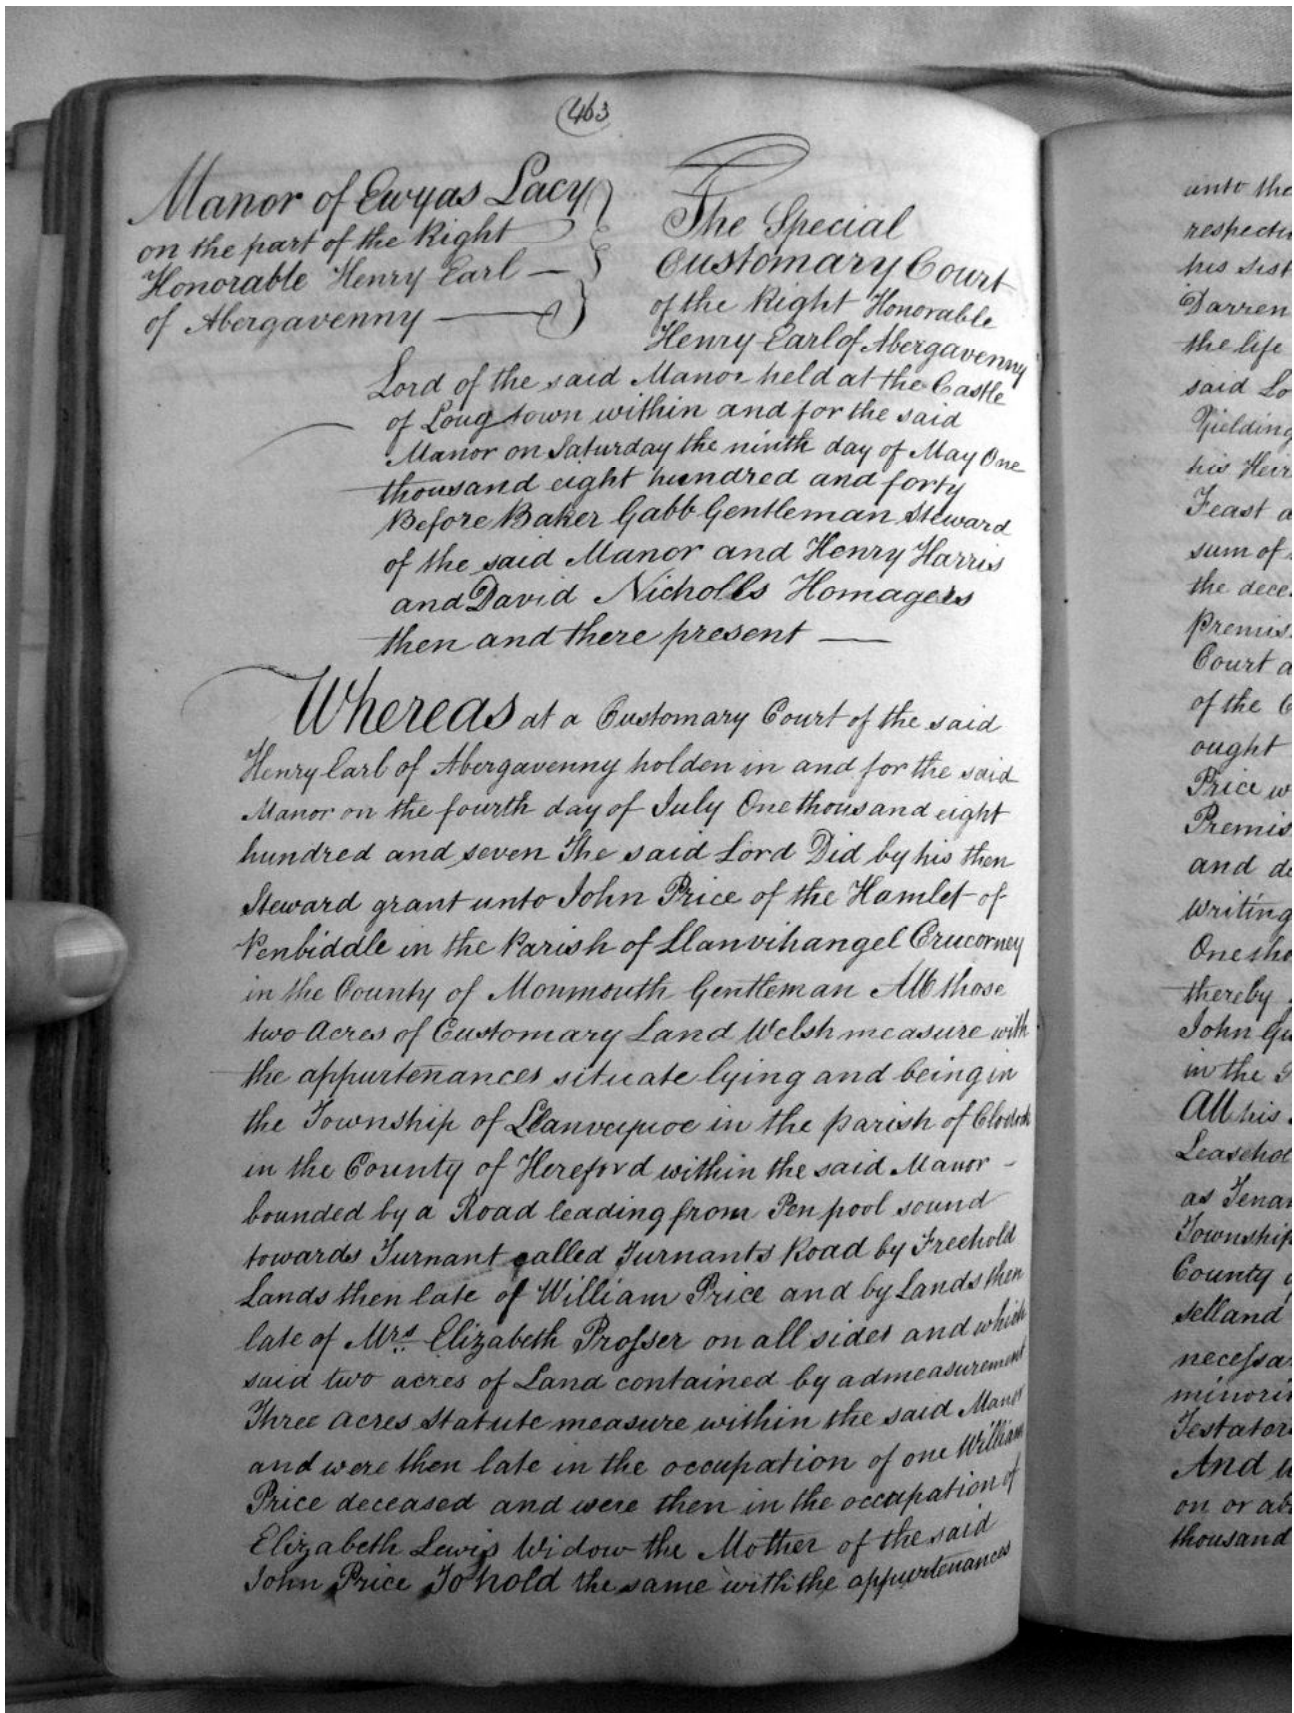 463
Manor of Ewyas Lacy
on the part of the Right
Honorable Henry Earl
of Abergavenny
The Special
Customary Court
of the Right Honorable
Henry Earl of Abergavenny
Lord of the said Manor held at the Castle
of Longtown within and for the said
Manor on Saturday the ninth day of May One
thousand eight hundred and forty
Before Baker Gabb Gentleman Steward
of the said Manor and Henry Harris
and David Nicholls Homagers
then and there present
Whereas at a Customary Court of the said
Henry Earl of Abergavenny holden in and for the said
Manor on the fourth day of July One thousand eight
hundred and seven The said Lord Did by his then
Steward grant unto John Price of the Hamlet of
Penbiddle in the Parish of Llanvihangel Crucorney
in the County of Monmouth Gentleman All those
two Acres of Customary Land Welsh measure with
the appurtenances situate lying and being in
the Township of Llanveynoe in the parish of Clodock
in the County of Hereford within the said Manor
bounded by a Road leading from Pen pool sound
towards Turnant called Turnants Road by Freehold
Lands then late of William Price and by Lands then
late of Mrs Elizabeth Prosser on all sides and which
said two acres of Land contained by admeasurement
Three Acres Statute measure within the said Manor
and were then late in the occupation of one William
Price deceased and were then in the occupation of
Elizabeth Lewis Widow the Mother of the said
John Price To hold the same with the appurtenances
unto the
his sist
Darren
the life
said Lo
Yielding
his Heir
Feast
sum of
the dece
premis
Court
of the
ought
Price w
Premis
and de
writing
One tho
thereby
John
in the
All his
Leasehol
as Tenan
Township
County
sell and
necessar
minorit
Testator
And w
on or ab
thousand